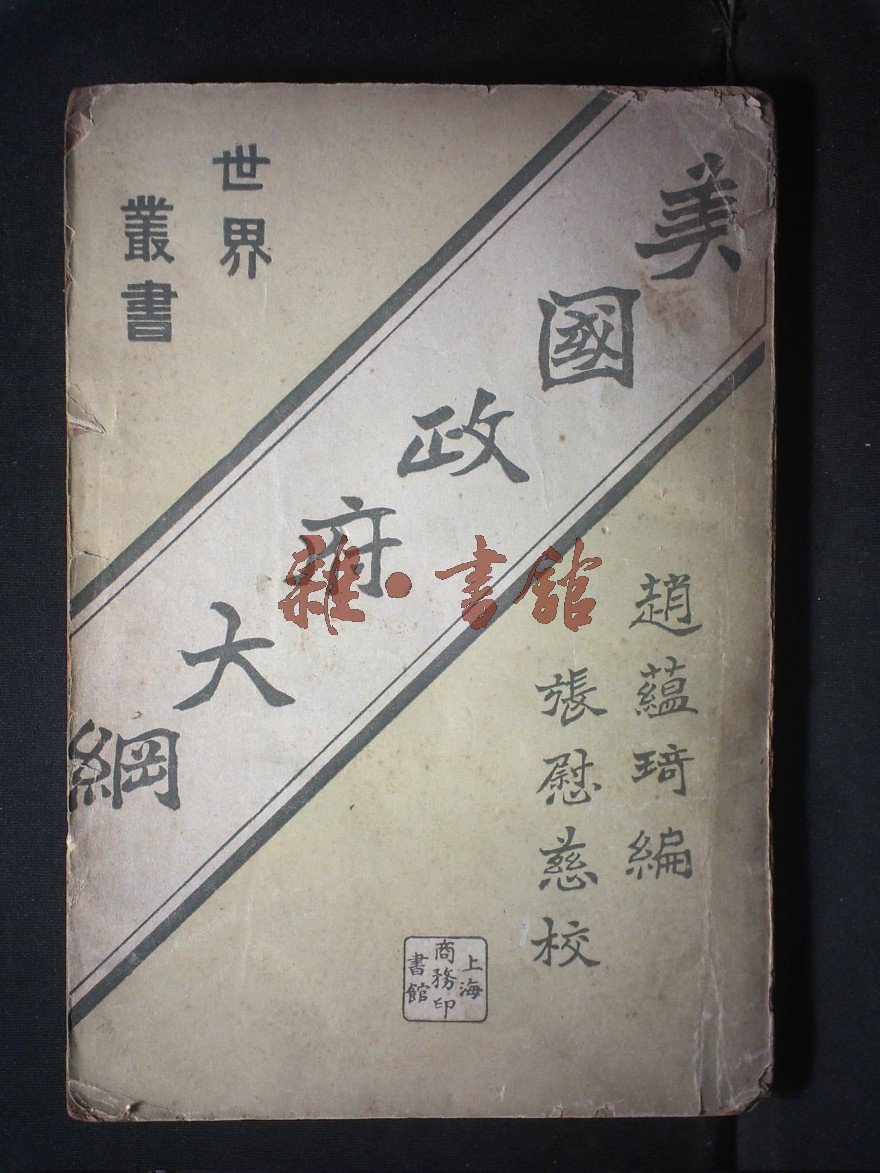 美國政府大綱
世界
叢書
趙蘊琦編
張慰慈校
上海
商務印
書館
雜·書館